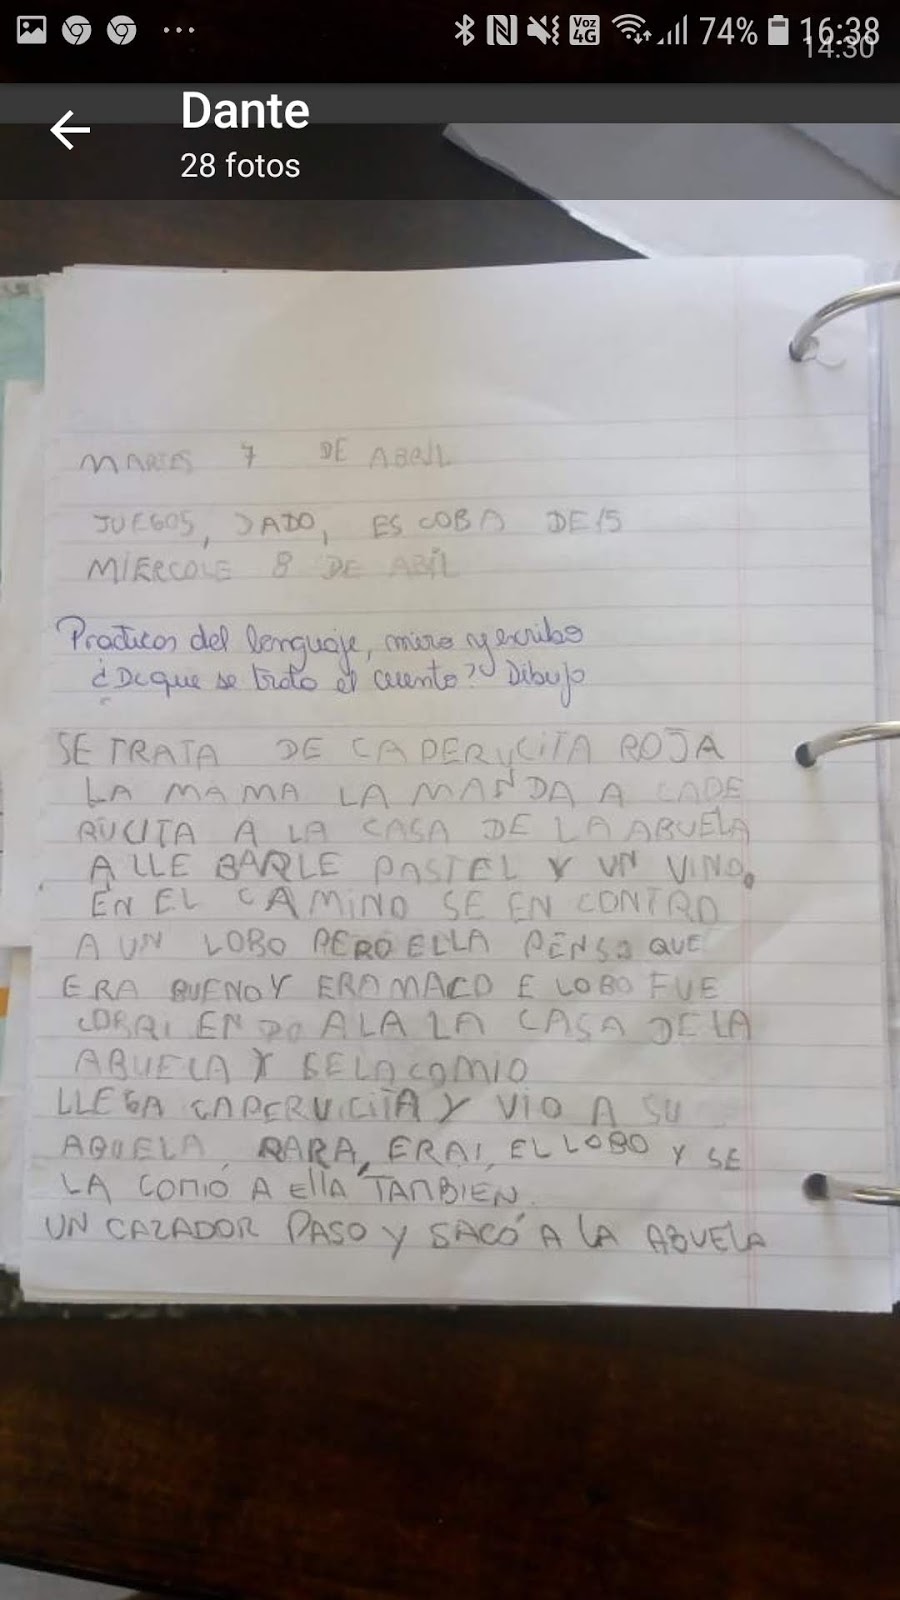 Voz 4G 74% 16:38
14:30
Dante
28 fotos
MARTES 7 DE ABRIL
JUEGOS, DADO, ESCOBA DE 15
MIERCOLE 8 DE ABIL
Practicas del lenguaje, miro y escribo
¿De que se trata el cuento? Dibujo
SE TRATA DE CAPERUCITA ROJA
LA MAMA LA MANDA A CADE
RUCITA A LA CASA DE LA ABUELA
A LLE BARLE PASTEL Y UN VINO.
EN EL CAMINO SE EN CONTRO
A UN LOBO PERO ELLA PENSO QUE
ERA BUENO Y ERA MACO E LOBO FUE
CORRI EN DO A LA LA CASA DE LA
ABUELA Y SE LA COMIO
LLEGA CAPERUCITA Y VIO A SU
ABUELA RARA, ERA, EL LOBO Y SE
LA COMIÓ A ELLA TAMBIEN.
UN CAZADOR PASO Y SACÓ A LA ABUELA